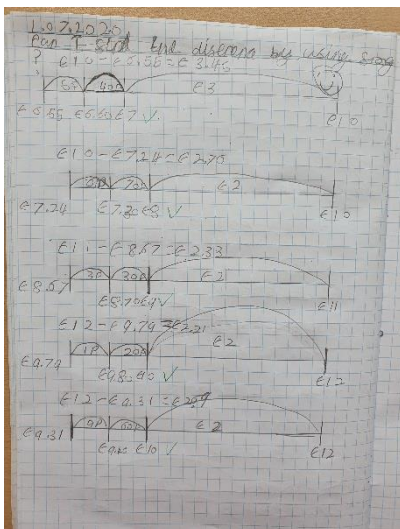 1.07.2020
Can I find the by using
?
€10-€6.55=€3.45
5p 40p €3
€6.55 €6.60 €7 ✓ €10
€10-€7.24=€2.76
6p 70p €2
€7.24 €7.30 €8 ✓ €10
€11-€8.67=€2.33
3p 30p €2
€8.67 €8.70 €9 ✓ €11
€12-€9.79=€2.21
1p 20p €2
€9.79 €9.80 €10 ✓ €12
€12-€9.31=€2.69
9p 60p €2
€9.31 €9.40 €10 ✓ €12